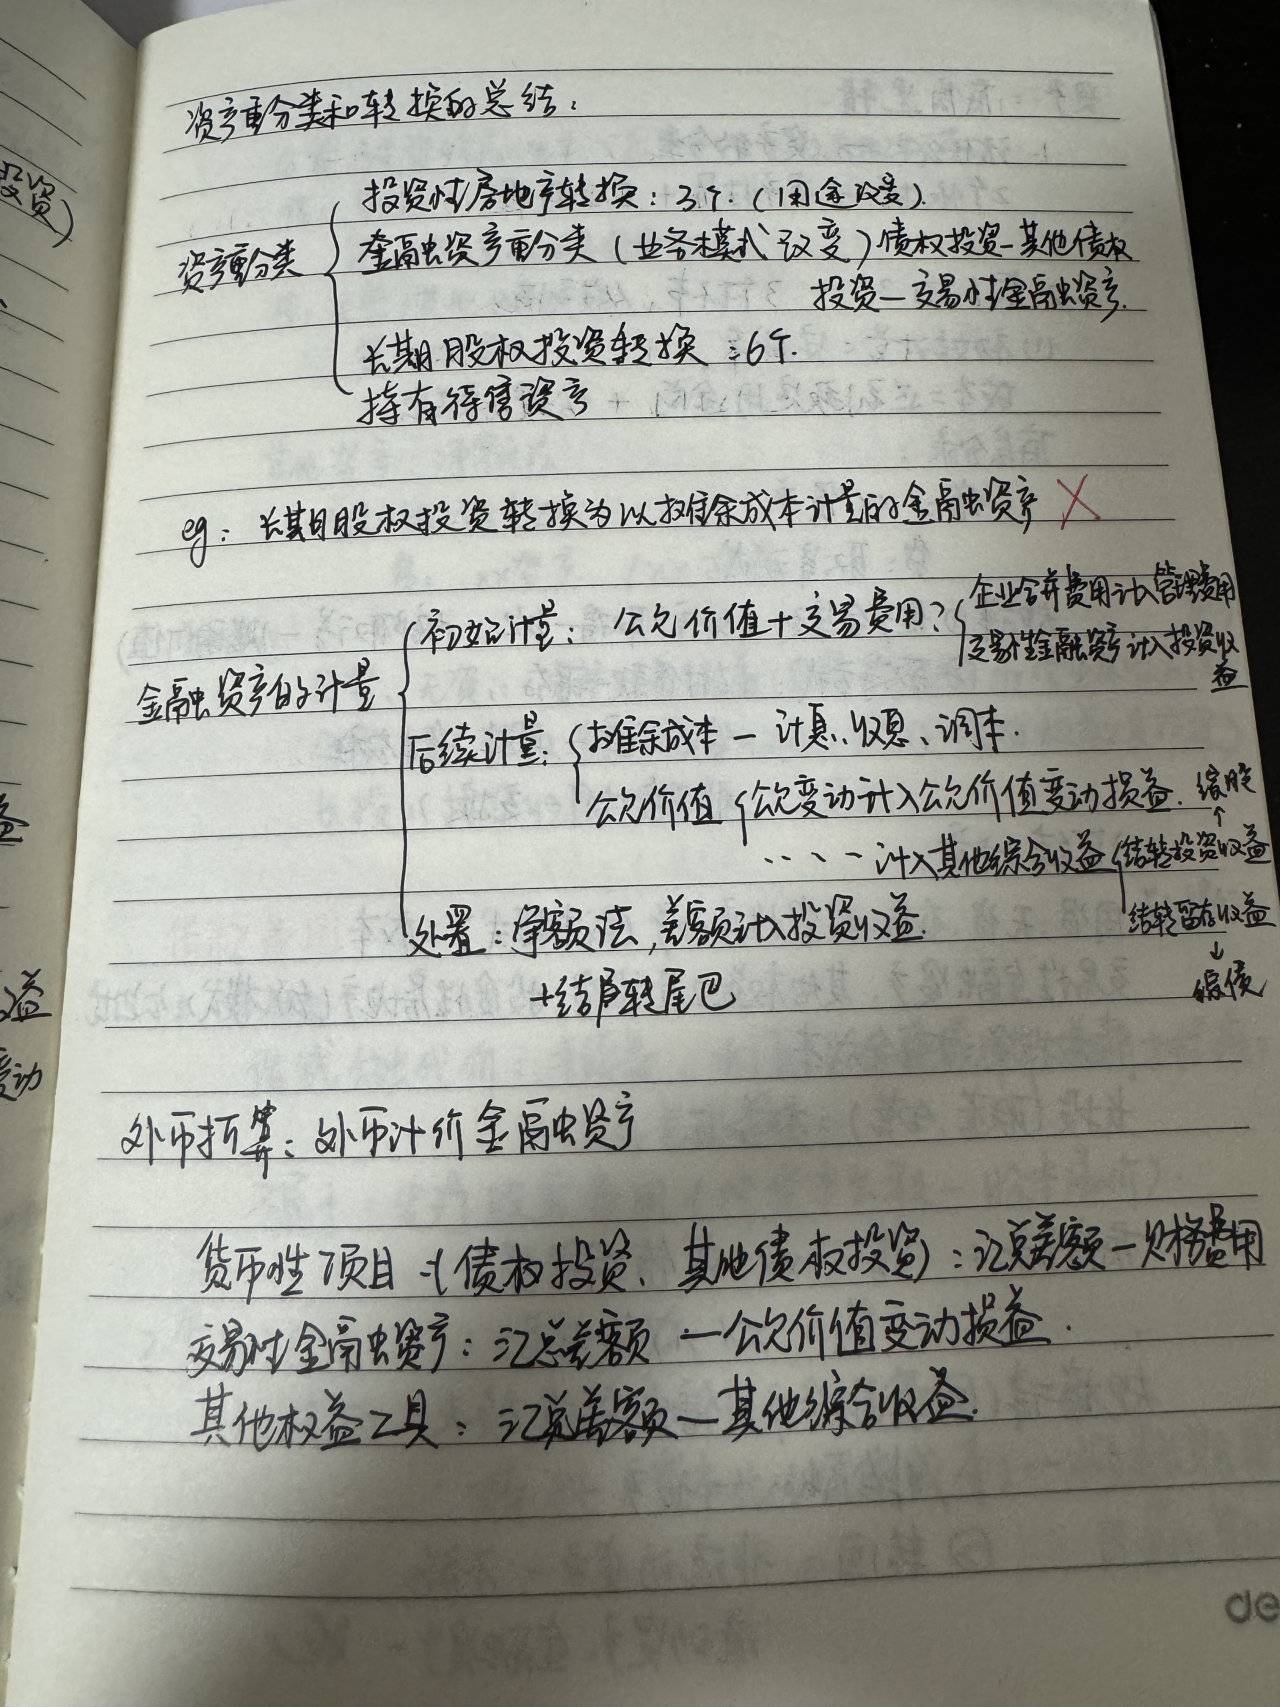 资产重分类和转换的总结:
投资性房地产转换:3个.(用途改变).
资产重分类
金融资产重分类(业务模式改变)债权投资—其他债权
投资—交易性金融资产.
长期股权投资转换:6个.
持有待售资产
eg:长期股权投资转换为以摊余成本计量的金融资产 ×
金融资产的计量
初始计量:公允价值+交易费用?
企业合并费用计入管理费用
交易性金融资产计入投资收
益
后续计量:
摊余成本—计息、收息、调本.
公允价值
公允变动计入公允价值变动损益.
....计入其他综合收益
结转投资收益
结转留存收益
处置:净额法,差额计入投资收益.
+结尾转尾巴
外币折算:外币计价金融资产
货币性项目(债权投资、其他债权投资):汇总差额—财务费用
交易性金融资产:汇总差额—公允价值变动损益.
其他权益工具:汇总差额—其他综合收益.
投资)
益
益
变动
de